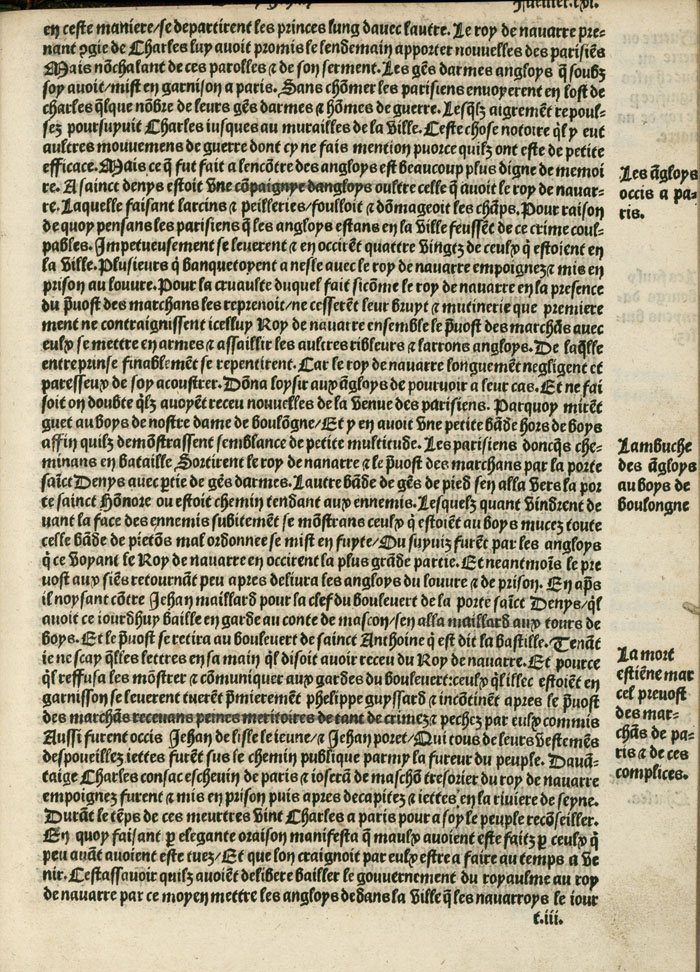 en ceste maniere/se departirent les princes lung dauec lautre. Le roy de nauarre pre-
nant ꝯgie de Charles luy auoit promis le lendemain apporter nouuelles des parisiẽs
Mais nõchalant de ces parolles ⁊ de son serment. Les gẽs darmes angloys q̃ soubz
soy auoit/mist en garnison a paris. Sans chõmer les parisiens enuoyerent en lost de
charles q̃lque nõbre de leurs gẽs darmes ⁊ hõmes de guerre. Lesq̃lz aigremẽt repoul-
sez poursuyuit Charles iusques au murailles de la ville. Ceste chose notoire q̃l y eut
aultres mouuemens de guerre dont cy ne fais mention pource quilz ont este de petite
efficace. Mais ce q̃ fut fait a lencõtre des angloys est beaucoup plus digne de memoi
re. A sainct denys estoit vne cõpaignye dangloys oultre celle q̃ auoit le roy de nauar-
re. Laquelle faisant larcins ⁊ peilleries/foulloit ⁊ dõmageoit les chãps. Pour raison
de quoy pensans les parisiens q̃ les angloys estans en la ville feussẽt de ce crime coul-
pables. Impetueusement se leuerent ⁊ en occirẽt quattre vingtz de ceulx q̃ estoient en
la ville. Plusieurs q̃ banquetoyent a nesle auec le roy de nauarre empoignez ⁊ mis en
prison au louure. Pour la cruaulte duquel fait sicõme le roy de nauarre en la presence
du p̃uost des marchans les reprenoit/ne cesserẽt leur bruyt ⁊ mutinerie que premiere
ment ne contraignissent icelluy Roy de nauarre ensemble le p̃uost des marchãs auec
eulx se mettre en armes ⁊ assaillir les aultres ribleurs ⁊ larrons angloys. De laq̃lle
entreprinse finablemẽt se repentirent. Car le roy de nauarre longuemẽt negligent et
paresseux de soy acoustrer. Dõna loysir aux ãgloys de pouruoir a leur cas. Et ne fai
soit on doubte q̃lz auoyẽt receu nouuelles de la venue des parisiens. Parquoy mirẽt
guet au boys de nostre dame de boulõgne/Et y en auoit vne petite bãde hors de boys
affin quilz demõstrassent semblance de petite multitude. Les parisiens doncq̃s che-
minans en bataille Sortirent le roy de nanarre ⁊ le p̃uost des marchans par la porte
saĩct Denys auec ꝑtie de gẽs darmes. Lautre bãde de gẽs de pied sen alla vers la por
te sainct Hõnore ou estoit chemin tendant aux ennemis. Lesquelz quant vindrent de
uant la face des ennemis subitemẽt se mõstrans ceulx q̃ estoiẽt au boys mucez toute
celle bãde de pietõs mal ordonnee se mist en fuyte/Ou suyuiz furẽt par les angloys
q̃ ce voyant le Roy de nauarre en occirent la plus grãde partie. Et neantmoĩs le pre
uost aux siẽs retournãt peu apres deliura les angloys du louure ⁊ de prison. En ap̃s
il noysant cõtre Jehan maillard pour la clef du bouleuert de la porte saĩct Denys/q̃l
auoit ce iourdhuy baille en garde au conte de mascon/sen alla maillard aux tours de
boys. Et le p̃uost se retira au bouleuert de sainct Anthoine q̃ est dit la bastille. Tenãt
ie ne scay q̃lles lettres en sa main q̃l disoit auoir receu du Roy de nauarre. Et pource
q̃l reffusa les mõstrer ⁊ cõmuniquer aux gardes du bouleuert:ceulx q̃ illec estoiẽt en
garnisson se leuerent tuerẽt p̃mieremẽt phelippe guyssard ⁊ incõtinẽt apres le p̃uost
des marchãs receuans peines meritoires de tant de crimez ⁊ pechez par eulx commis
Aussi furent occis Jehan de lisle le ieune/⁊ Jehan poret/Qui tous de leurs vestemẽs
despoueillez iettes furẽt sus le chemin publique parmy la fureur du peuple. Dauã-
taige Charles consac escheuin de paris ⁊ ioserã de maschõ tresorier du roy de nauarre
empoignez furent ⁊ mis en prison puis apres decapitez ⁊ iettes en la riuiere de seyne.
Durãt le tẽps de ces meurtres vint Charles a paris pour a soy le peuple recõseiller.
En quoy faisant ꝑ elegante oraison manifesta q̃ maulx auoient este faitz ꝑ ceulx q̃
peu auãt auoient este tuez/Et que lon craignoit par eulx estre a faire au temps a ve
nir. Cestassauoir quilz auoiẽt delibere bailler le gouuernement du royaulme au roy
de nauarre par ce moyen mettre les angloys dedans la ville q̃ les nauarroys le iour
t.iii.
Les ãgloys
occis a pa-
ris.
Lambuche
des ãgloys
au boys de
boulongne
La mort
estiẽne mar
cel preuost
des mar-
chãs de pa-
ris ⁊ de ces
complices.